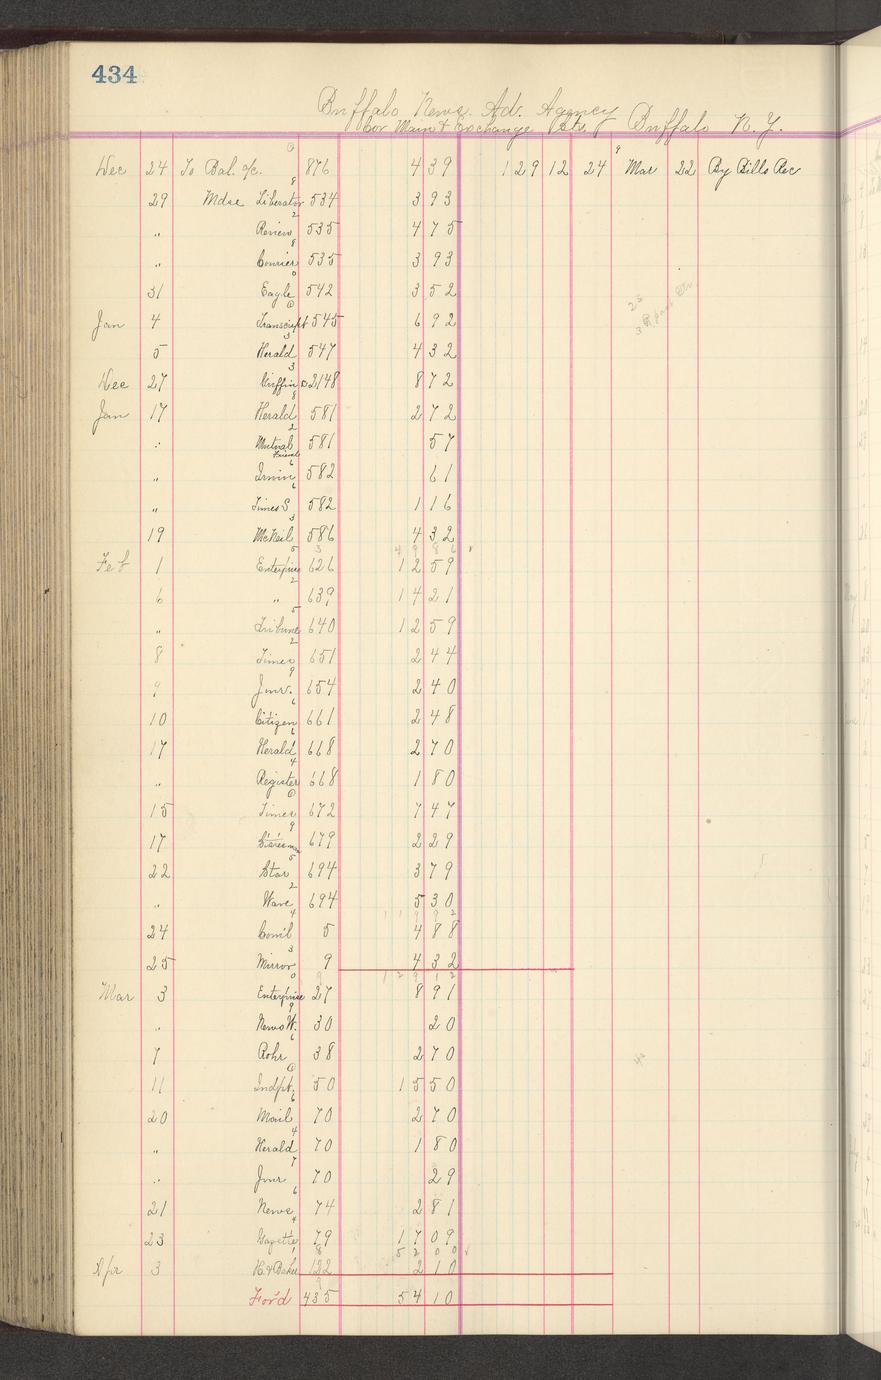 434
Buffalo News Ad. Agency
Cor Main & Exchange Sts. Buffalo N.Y.
Dec 24 To Bal. a/c. 876 4 39 129 12 24 Mar 22 By Bills Rec
29 Mdse Liberator 534 3 93
" Review 535 4 75
" Courier 535 3 93
31 Eagle 542 3 52
Jan 4 Transcript 545 6 92
5 Herald 547 4 32
Dec 27 Griffin 2148 8 72
Jan 17 Herald 581 2 72
" Mutual Friend 581 57
" Irwin 582 61
" Times S 582 1 16
19 McNeil 586 4 32
49 86
Feb 1 Enterprise 626 12 59
6 " 639 14 21
" Tribune 640 12 59
8 Times 651 2 44
9 Jour. 654 2 40
10 Citizen 661 2 48
17 Herald 668 2 70
" Register 668 1 80
15 Times 672 7 47
17 Statesman 679 2 29
22 Star 694 3 79
" Wave 694 5 30
119 92
24 Coml 5 4 88
25 Mirror 9 4 32
129 12
Mar 3 Enterprise 27 8 91
" News W. 30 20
7 Rohr 38 2 70
11 Indpt. 50 15 50
20 Mail 70 2 70
" Herald 70 1 80
" Jour 70 29
21 News 74 2 81
23 Gazette 79 17 09
52 00
Apr 3 H. & Baker 122 2 10
For'd 435 54 10